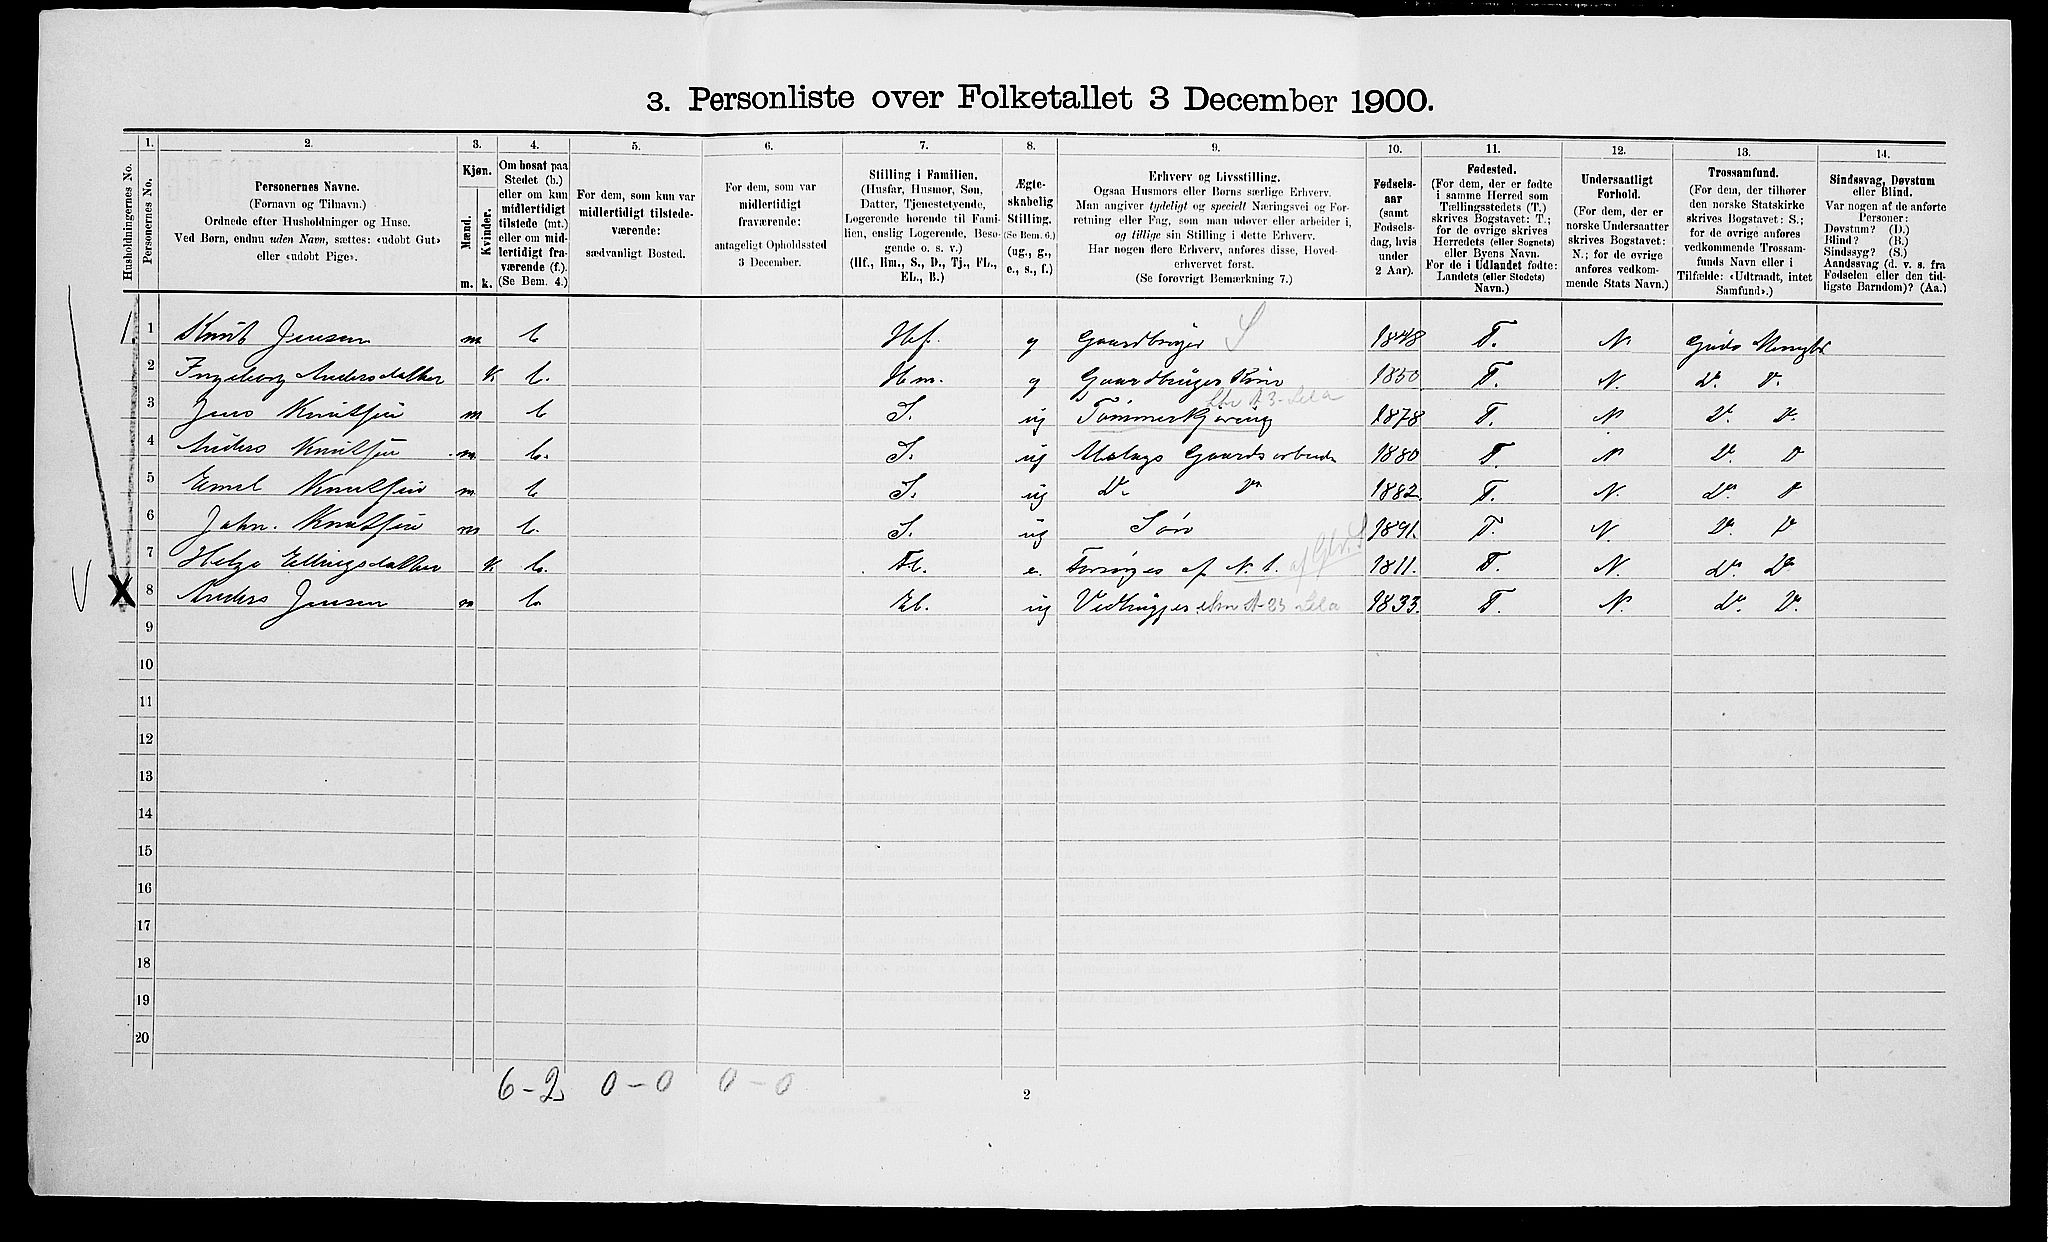 3. Personliste over Folketallet 3 December 1900.
Husholdningernes No.
1.
Personernes No.
2.
Personernes Navne.
(Fornavn og Tilnavn.)
Ordnede efter Husholdninger og Huse.
Ved Børn, endnu uden Navn, sættes: «udøbt Gut»
eller «udøbt Pige».
3.
Kjøn.
Mænd.
Kvinder.
m. k.
4.
Om bosat paa
Stedet (b.)
eller om kun
midlertidigt
tilstede (mt.)
eller om mid-
lertidigt fra-
værende (f.)
(Se Bem. 4.)
5.
For dem, som kun var
midlertidigt tilstede-
værende:
sædvanligt Bosted.
6.
For dem, som var
midlertidigt
fraværende:
antageligt Opholdssted
3 December.
7.
Stilling i Familien.
(Husfar, Husmor, Søn,
Datter, Tjenestetyende,
Logerende hørende til Fami-
lien, enslig Logerende, Besø-
gende o. s. v.)
(Hf., Hm., S., D., Tj., FL.,
EL., B.)
8.
Ægte-
skabelig
Stilling.
(Se Bem. 6.)
(ug., g.,
e., s., f.)
9.
Erhverv og Livsstilling.
Ogsaa Husmors eller Børns særlige Erhverv.
Man angiver tydeligt og specielt Næringsvei og For-
retning eller Fag, som man udøver eller arbeider i,
og tillige sin Stilling i dette Erhverv.
Har nogen flere Erhverv, anføres disse, Hoved-
erhvervet først.
(Se forøvrigt Bemærkning 7.)
10.
Fødsels-
aar
(samt
Fødsels-
dag, hvis
under
2 Aar).
11.
Fødested.
(For dem, der er fødte
i samme Herred som
Tællingsstedets (T.)
skrives Bogstavet: T.;
for de øvrige skrives
Herredets (eller Sognets)
eller Byens Navn.
For de i Udlandet fødte:
Landets (eller Stedets)
Navn.)
12.
Undersaatligt
Forhold.
(For dem, der er
norske Undersaatter
skrives Bogstavet:
N.; for de øvrige
anføres vedkom-
mende Stats Navn.)
13.
Trossamfund.
(For dem, der tilhører
den norske Statskirke
skrives Bogstavet: S.;
for de øvrige anføres
vedkommende Trossam-
funds Navn eller i
Tilfælde: «Udtraadt, intet
Samfund».)
14.
Sindssvag, Døvstum
eller Blind.
Var nogen af de anførte
Personer:
Døvstum? (D.)
Blind? (B.)
Sindssyg? (S.)
Aandssvag (d. v. s. fra
Fødselen eller den tid-
ligste Barndom)? (Aa.)
1. 1 Knut Jensen m b Hf. g Gaardbruger S 1848 T. N. Guds Menighed
2 Ingeborg Andersdatter K b. Hm. g Gaardbruger Kone 1850 T. N. Do. Do.
3 Jens Knutsen m b S. ug Tømmerkjøring 1878 T. N Do. Do.
4 Anders Knutsen m b. S. ug Gaardsarbeide 1880 T. N Do. Do
5 Emil Knutsen m b S. ug Do. Do 1882 T. N. Do. Do
6 Johan. Knutsen m b. S. ug Søn 1891. T. N. Do. Do
7 Helge Ellingsdatter K b. Fl. e. Forsørges af N. 1. 1811. T. N. Do. Do.
V X 8 Anders Jensen m b El. ug Vedhugger 1833. T. N. Do. Do.
9
10
11
12
13
14
15
16
17
18
19
20
6 - 2 0 - 0 0 - 0
2